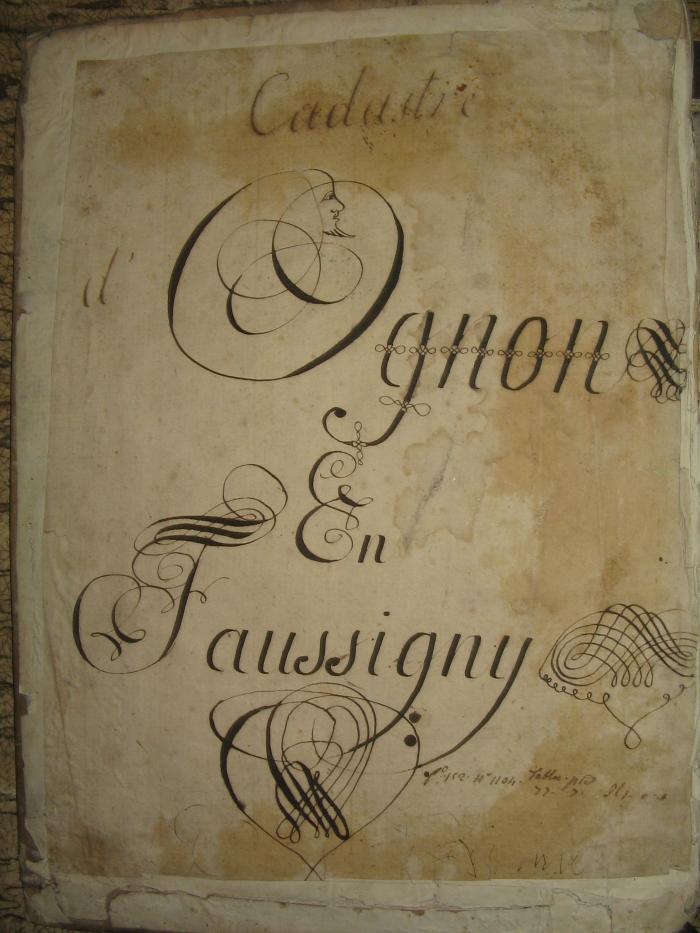 Cadastre
d'Ognon
En
Faussigny
N° 1104